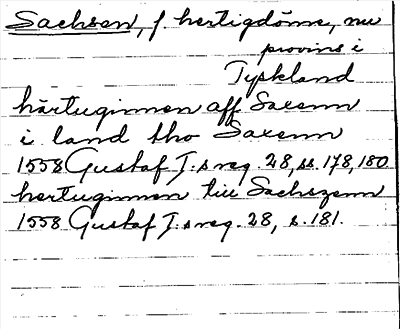 Sachsen, f. hertigdöme, nu
provins i
Tyskland
härtuginnen aff Saxenn
i land tho Saxenn
1558 Gustaf I:s reg. 28, ss. 178, 180
hertuginnen till Sachszenn
1558 Gustaf I:s reg. 28, s. 181.